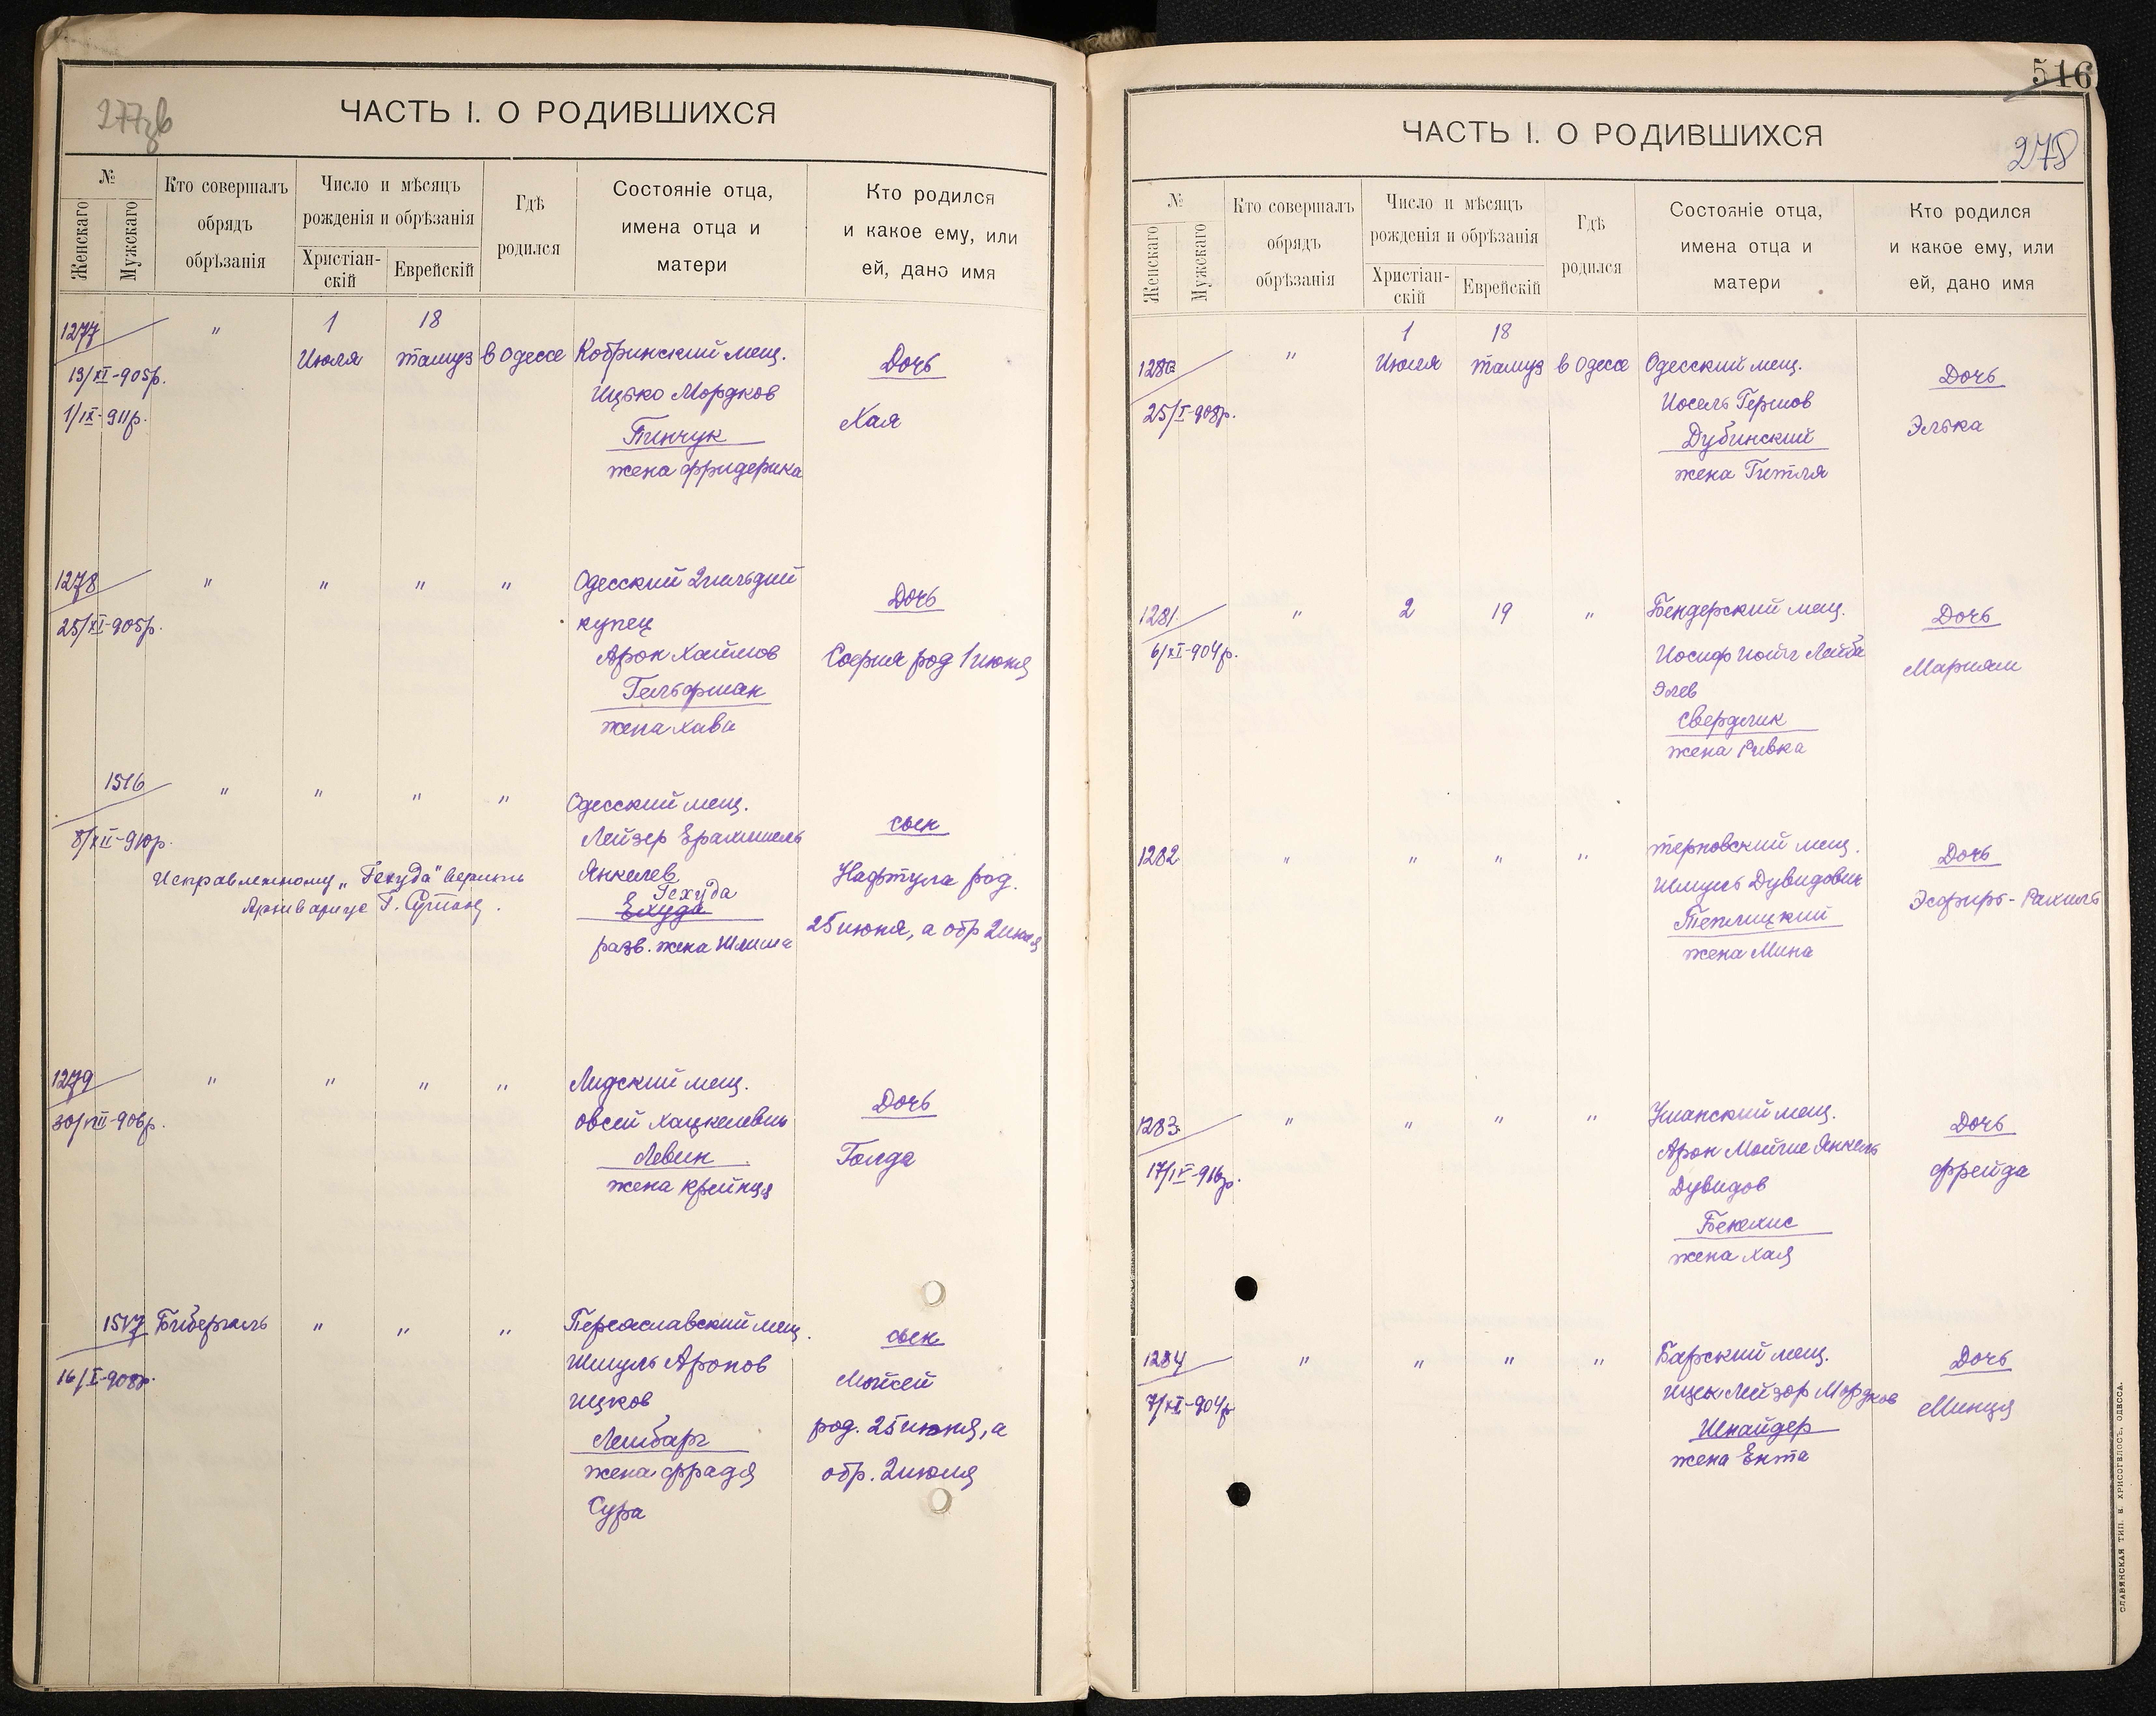 277зв
ЧАСТЬ I. О РОДИВШИХСЯ
№
Женскаго
Мужскаго
Кто совершалъ
обрядъ
обрѣзанія
Число и мѣсяцъ
рожденія и обрѣзанія
Христіан-
скій
Еврейскій
Гдѣ
родился
Состояніе отца,
имена отца и
матери
Кто родился
и какое ему, или
ей, дано имя
1277
13/XI-905р.
1/IX-911р.
"
1
Июля
18
тамуз
в Одессе
Кобринский мещ.
Ицько Мордков
Пинчук
жена Фридерика
Дочь
Хая
1278
25/XI-905р.
"
"
"
"
Одесский 2 гильдии
купец
Арон Хаимов
Гельфман
жена Хава
Дочь
София род 1 июня
1516
8/XII-910р.
"
"
"
"
Исправленному „Гехуда" верить
Архивариус Г.
Одесский мещ.
Лейзер Ерахмиель
Янкелев
Гехуда
Ехуда
разв. жена Шлима
сын
Нафтула род.
25 июня, а обр 2 июля
1279
30/VIII-906р.
"
"
"
"
Лидский мещ.
Овсей Хацкелевич
Левин
жена Крейнця
Дочь
Голда
1517
16/X-908р.
Бибергаль
"
"
"
Переяславский мещ.
Шмуль Аронов
Ицков
Лембарг
жена Фрадя
Сура
сын
Мойсей
род. 25 июня, а
обр. 2 июля
516
278
ЧАСТЬ I. О РОДИВШИХСЯ
№
Женскаго
Мужскаго
Кто совершалъ
обрядъ
обрѣзанія
Число и мѣсяцъ
рожденія и обрѣзанія
Христіан-
скій
Еврейскій
Гдѣ
родился
Состояніе отца,
имена отца и
матери
Кто родился
и какое ему, или
ей, дано имя
1280
25/I-908р.
"
1
Июля
18
тамуз
в Одессе
Одесский мещ.
Иосель Гершов
Дубинский
жена Гитля
Дочь
Элька
1281
6/XI-904р.
"
2
19
"
Бендерский мещ.
Иосиф Лейба
Элев
Свердлик
жена Ривка
Дочь
Мариям
1282
"
"
"
"
Терновский мещ.
Шмуль Дувидович
Теплицкий
жена Мина
Дочь
Эсфирь-Рахиль
1283
17/IV-916р.
"
"
"
"
Уманский мещ.
Арон Мойше Янкель
Дувидов
жена Хая
Дочь
Фрейда
1284
7/XI-904р
"
"
"
"
Барский мещ.
Ицек Лейзор Мордков
Шнайдер
жена Ента
Дочь
Минця
СЛАВЯНСКАЯ ТИП. Е. ХРИСОГЕЛОСЪ, ОДЕССА.